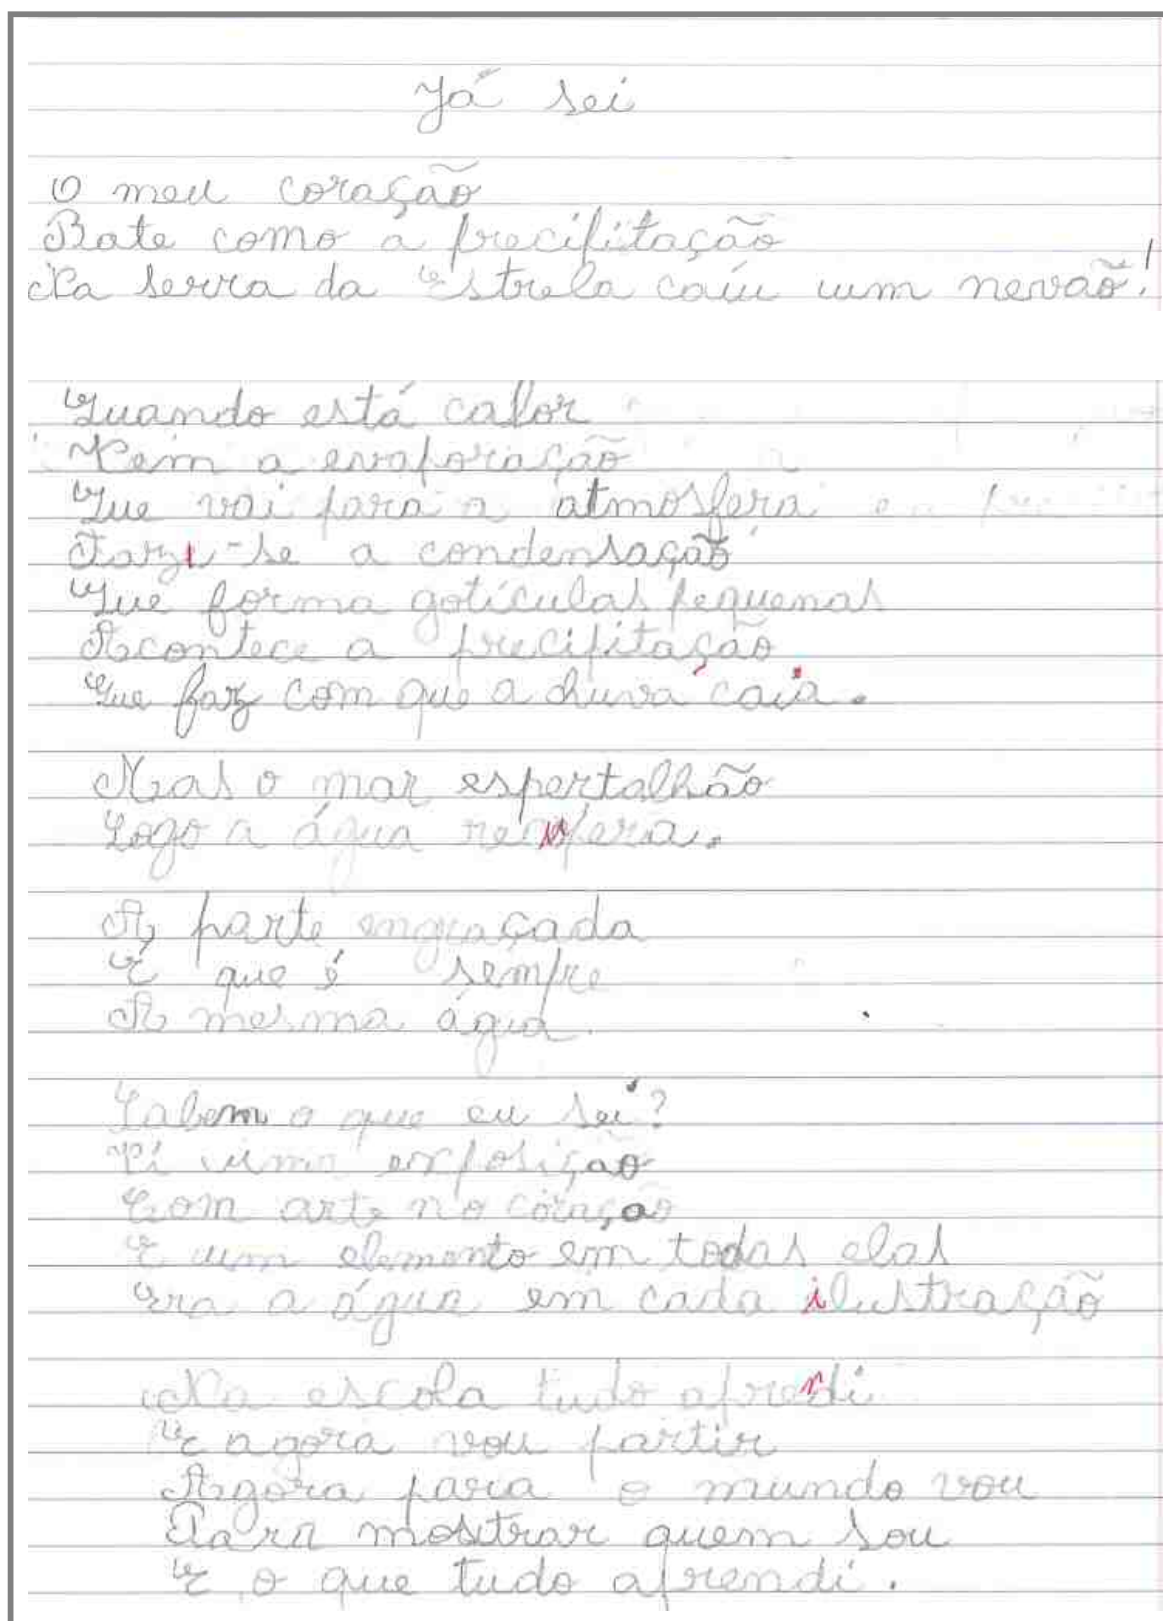 Já sei
O meu coração
Bate como a precipitação
Na serra da Estrela caiu um nevão!
Quando está calor
Vem a evaporação
Que vai para a atmosfera
Faz-se a condensação
Que forma gotículas pequenas
Acontece a precipitação
Que faz com que a chuva caia.
Mas o mar espertalhão
Logo a água recupera.
A parte engraçada
É que é sempre
A mesma água.
Sabem o que eu sei?
Vi uma exposição
Com arte no coração
E um elemento em todas elas
Era a água em cada ilustração
Na escola tudo aprendi
E agora vou partir
Agora para o mundo vou
Para mostrar quem sou
E o que tudo aprendi.